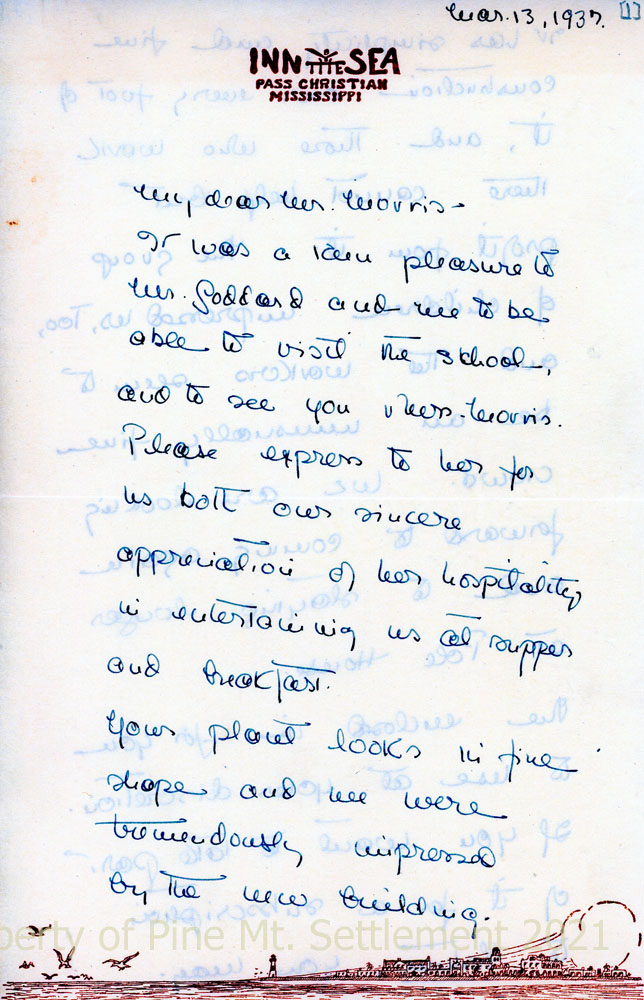 Mar. 13, 1937. [1]
INN BY THE SEA
PASS CHRISTIAN
MISSISSIPPI
My dear Mr. Morris -
It was a keen pleasure to
Mr. Goddard and me to be
able to visit the school,
and to see you & Mrs. Morris.
Please express to her for
us both our sincere
appreciation of her hospitality
in entertaining us at supper
and breakfast.
Your plant looks in fine
shape and we were
tremendously impressed
by the new building.
perty of Pine Mt. Settlement 2021